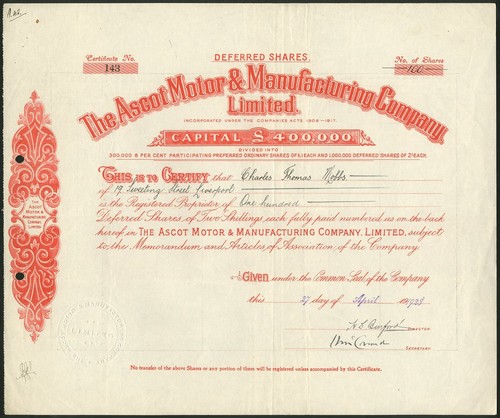 DEFERRED SHARES.
Certificate No. 143
No. of Shares 100
The Ascot Motor & Manufacturing Company
Limited.
INCORPORATED UNDER THE COMPANIES ACTS, 1908-1917.
CAPITAL £400,000
DIVIDED INTO
300,000 8 PER CENT PARTICIPATING PREFERRED ORDINARY SHARES OF £1 EACH AND 1,000,000 DEFERRED SHARES OF 2/- EACH.
THIS IS TO CERTIFY that Charles Thomas Hobbs
of 19 Sweeting Street Liverpool
is the Registered Proprietor of One hundred
Deferred Shares of Two Shillings each fully paid numbered as on the back
hereof in THE ASCOT MOTOR & MANUFACTURING COMPANY, LIMITED, subject
to the Memorandum and Articles of Association of the Company
THE
ASCOT
MOTOR &
MANUFACTURING
COMPANY,
LIMITED
Given under the Common Seal of the Company
this 27 day of April 1928
DIRECTOR
SECRETARY
LIMITED
No transfer of the above Shares or any portion of them will be registered unless accompanied by this Certificate.